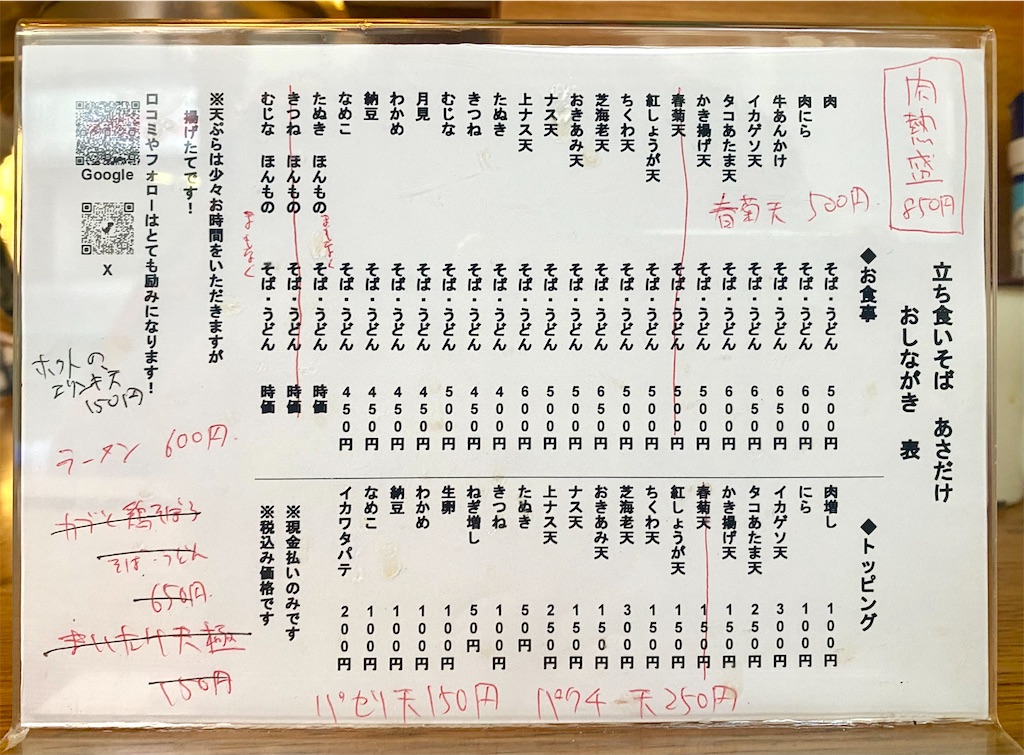 肉熱盛
850円
立ち食いそば　あさだけ
おしながき　表
◆お食事
肉　そば・うどん　500円
肉にら　そば・うどん　600円
牛あんかけ　そば・うどん　650円
イカゲソ天　そば・うどん　650円
タコあたま天　そば・うどん　600円
かき揚げ天　そば・うどん　500円
春菊天　そば・うどん　500円
紅しょうが天　そば・うどん　500円
ちくわ天　そば・うどん　500円
芝海老天　そば・うどん　650円
おきあみ天　そば・うどん　500円
ナス天　そば・うどん　500円
上ナス天　そば・うどん　600円
たぬき　そば・うどん　400円
きつね　そば・うどん　450円
むじな　そば・うどん　500円
月見　そば・うどん　450円
わかめ　そば・うどん　450円
納豆　そば・うどん　450円
なめこ　そば・うどん　450円
たぬき　ほんもの　そば・うどん　時価
きつね　ほんもの　そば・うどん　時価
むじな　ほんもの　そば・うどん　時価
春菊天　500円
まもなく
まもなく
※天ぷらは少々お時間をいただきますが
揚げたてです！
口コミやフォローはとても励みになります！
Google
X
◆トッピング
肉増し　100円
にら　100円
イカゲソ天　300円
タコあたま天　250円
かき揚げ天　150円
春菊天　150円
紅しょうが天　150円
ちくわ天　150円
芝海老天　300円
おきあみ天　150円
ナス天　150円
上ナス天　250円
たぬき　50円
きつね　100円
ねぎ増し　50円
生卵　100円
わかめ　100円
納豆　100円
なめこ　100円
イカワタパテ　200円
※現金払いのみです
※税込み価格です
ホクトの
エリンギ天
150円
ラーメン　600円
カブと鶏そぼろ
そば・うどん
650円
まいたけ天極
150円
パセリ天150円　パクチー天250円